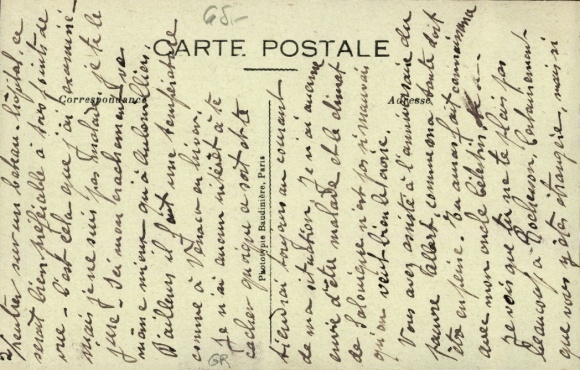 65.-
CARTE POSTALE
Correspondance
Adresse
Phototypie Baudinière, Paris
GR
rentrer sur un bateau-hôpital, ce
serait bien préférable à tous points de
vue - C'est cela que j'ai examiné -
mais je ne suis pas malade, je te le
jure - Ici mon crachement
même mieux qu'à Aubervilliers.
D'ailleurs il fait une température
comme à Menaco en hiver.
Je n'ai aucun intérêt à te
cacher quoique ce soit et te
tiendrai toujours au courant
de ma situation. Je n'ai aucune
envie d'être malade et le climat
de Salonique n'est pas si mauvais
qu'on veut bien le croire.
Vous avez assisté à l'anniversaire du
pauvre Albert comme ma tante doit
être en peine. Tu auras fait connaissance
avec mon oncle Célestin
Je vois que tu ne te plais pas
beaucoup à Rochemon. Certainement
que vous y êtes étrangère, mais si